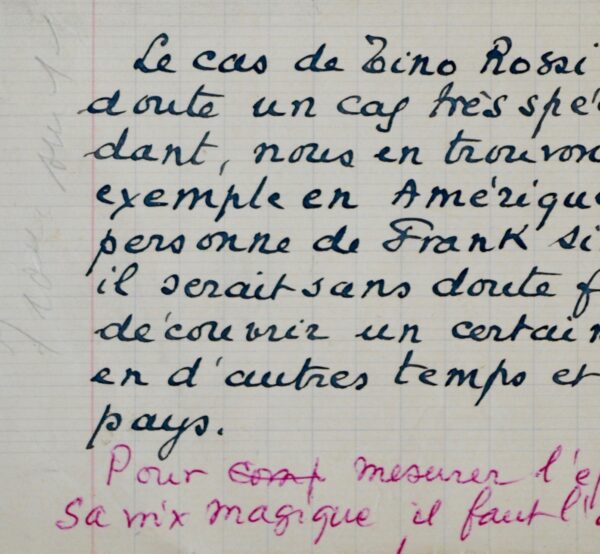 Le cas de Tino Rossi
doute un cas très spé
dant, nous en trouvon
exemple en Amérique
personne de Frank Si
il serait sans doute f
découvrir un certain
en d'autres temps et
pays.
Pour comp mesurer l'e
Sa voix magique, il faut l'